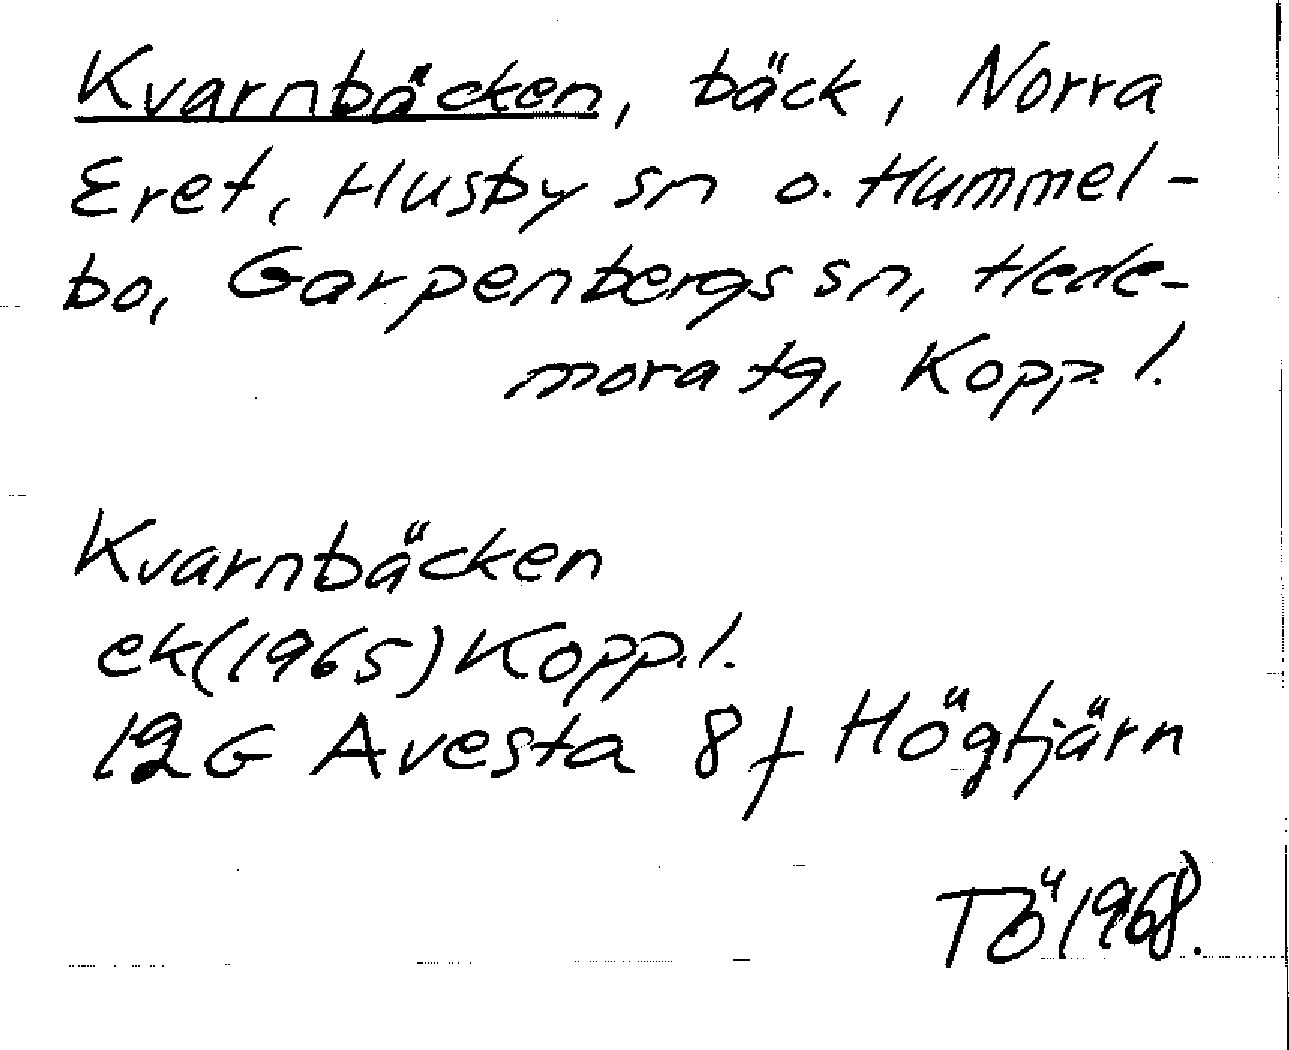 Kvarnbäcken, bäck, Norra
Eret, Husby sn o. Hummel-
bo, Garpenbergs sn, Hede-
mora tg, Kopp. l.
Kvarnbäcken
ek (1965) Kopp. l.
12G Avesta 8 f Högtjärn
TÖ 1968.